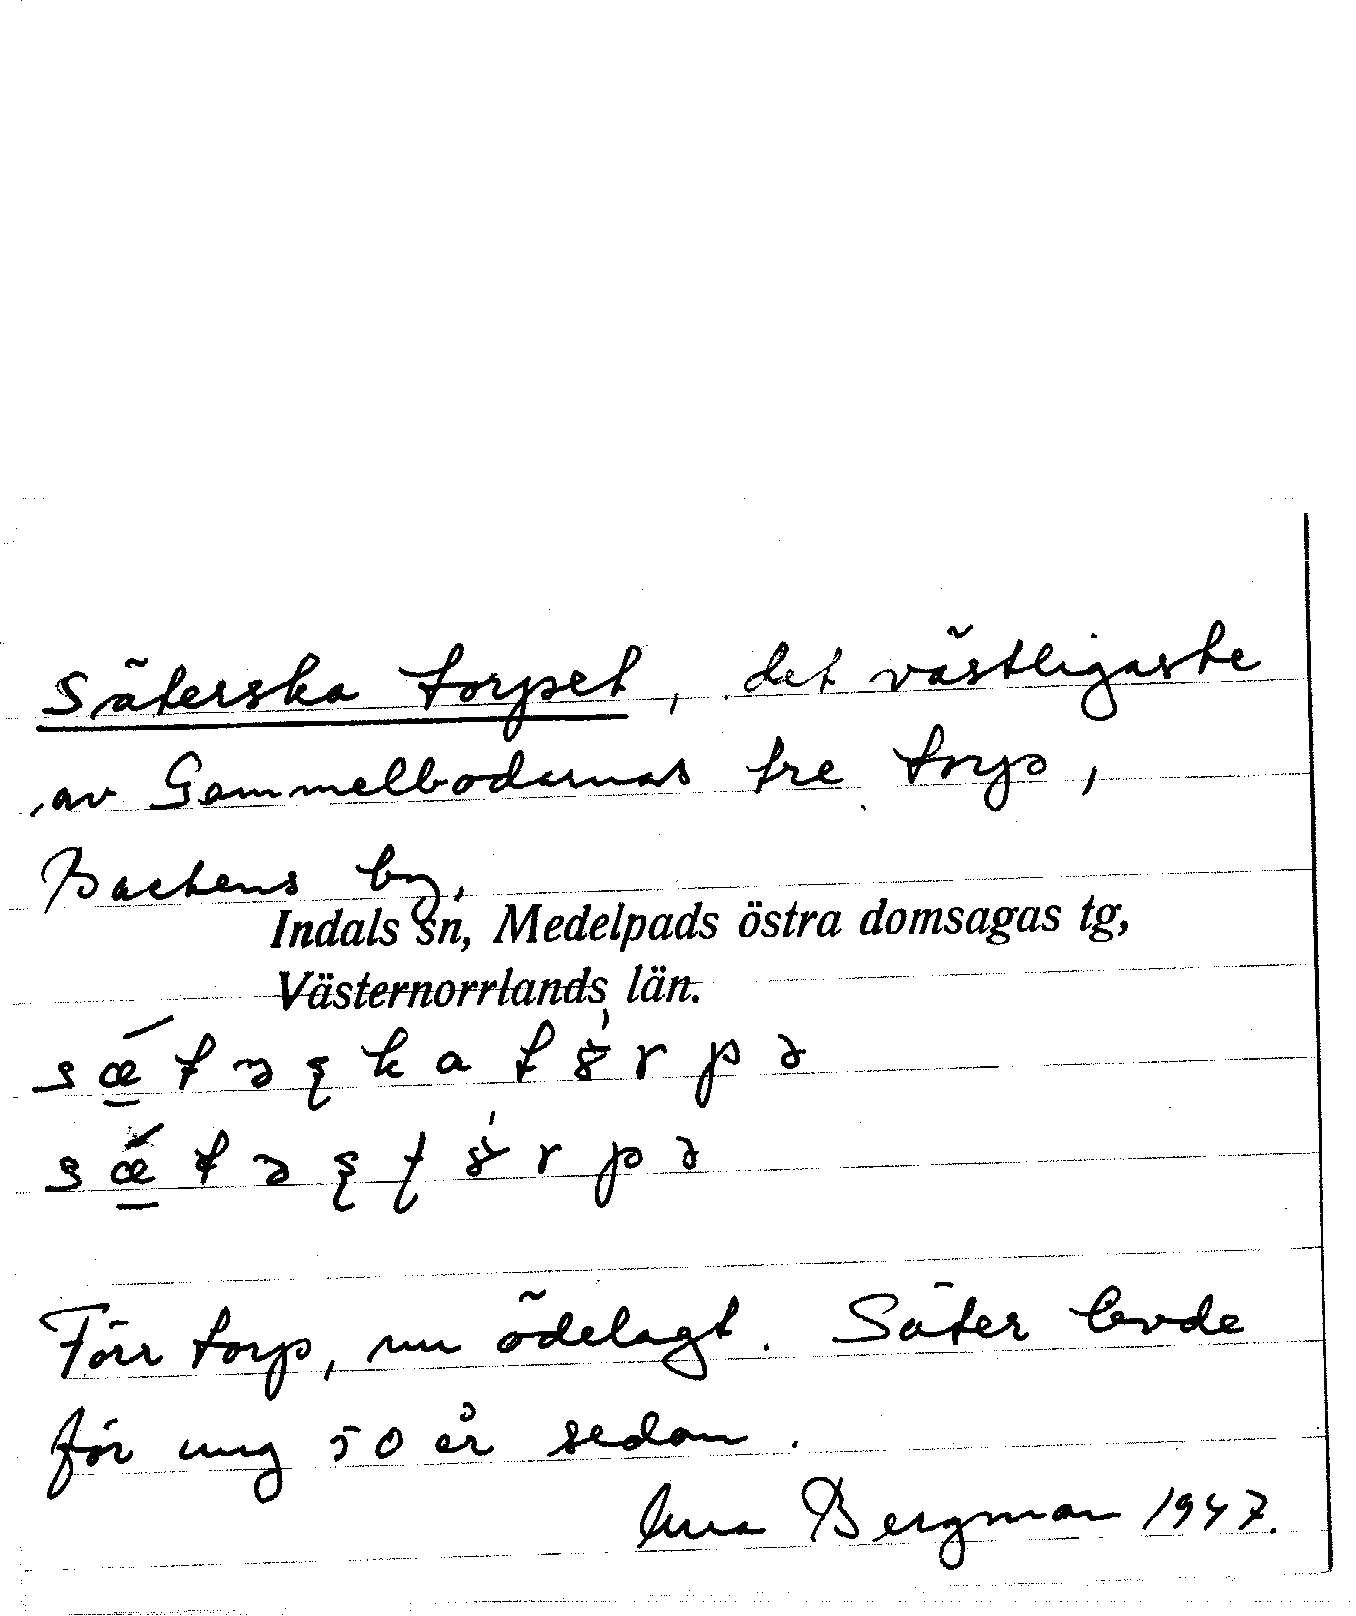 Säterska torpet, det västligaste
av Gammelbodarnas tre torp,
Backens by,
Indals sn, Medelpads östra domsagas tg,
Västernorrlands län.
Förr torp, nu ödelagt. Säter levde
för ung 50 år sedan.
Bergman 1947.